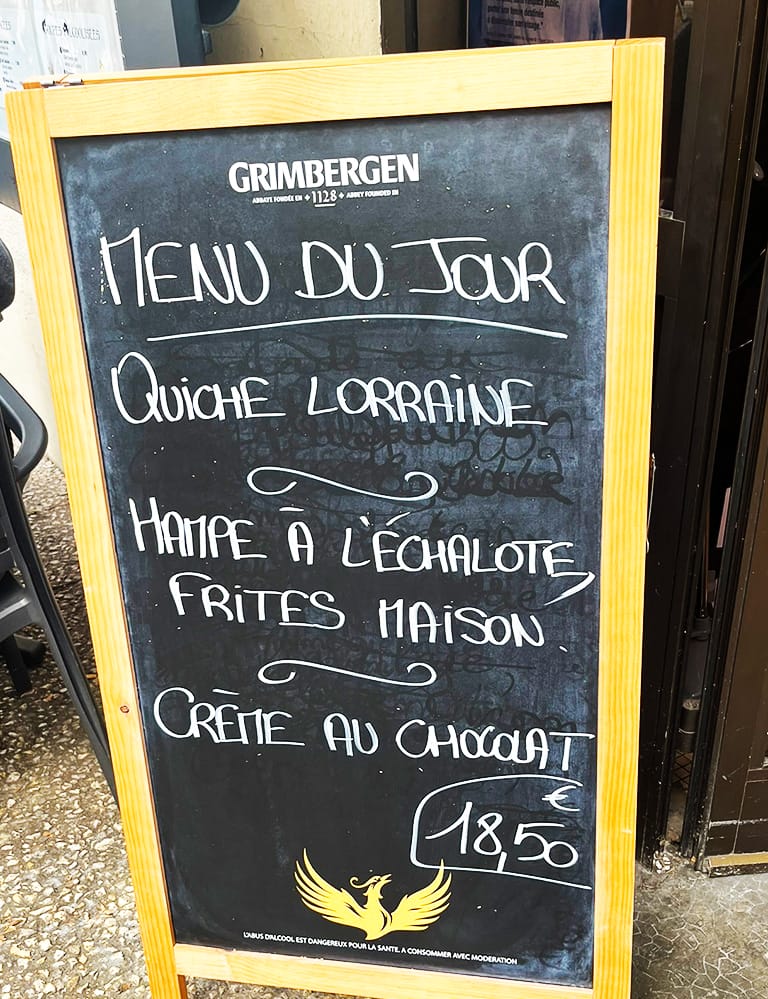 GRIMBERGEN
ABBAYE FONDÉE EN 1128 ABBEY FOUNDED IN
MENU DU JOUR
QUICHE LORRAINE
HAMPE À L'ÉCHALOTE,
FRITES MAISON.
CRÈME AU CHOCOLAT
€
18,50
L'ABUS D'ALCOOL EST DANGEREUX POUR LA SANTE. A CONSOMMER AVEC MODERATION